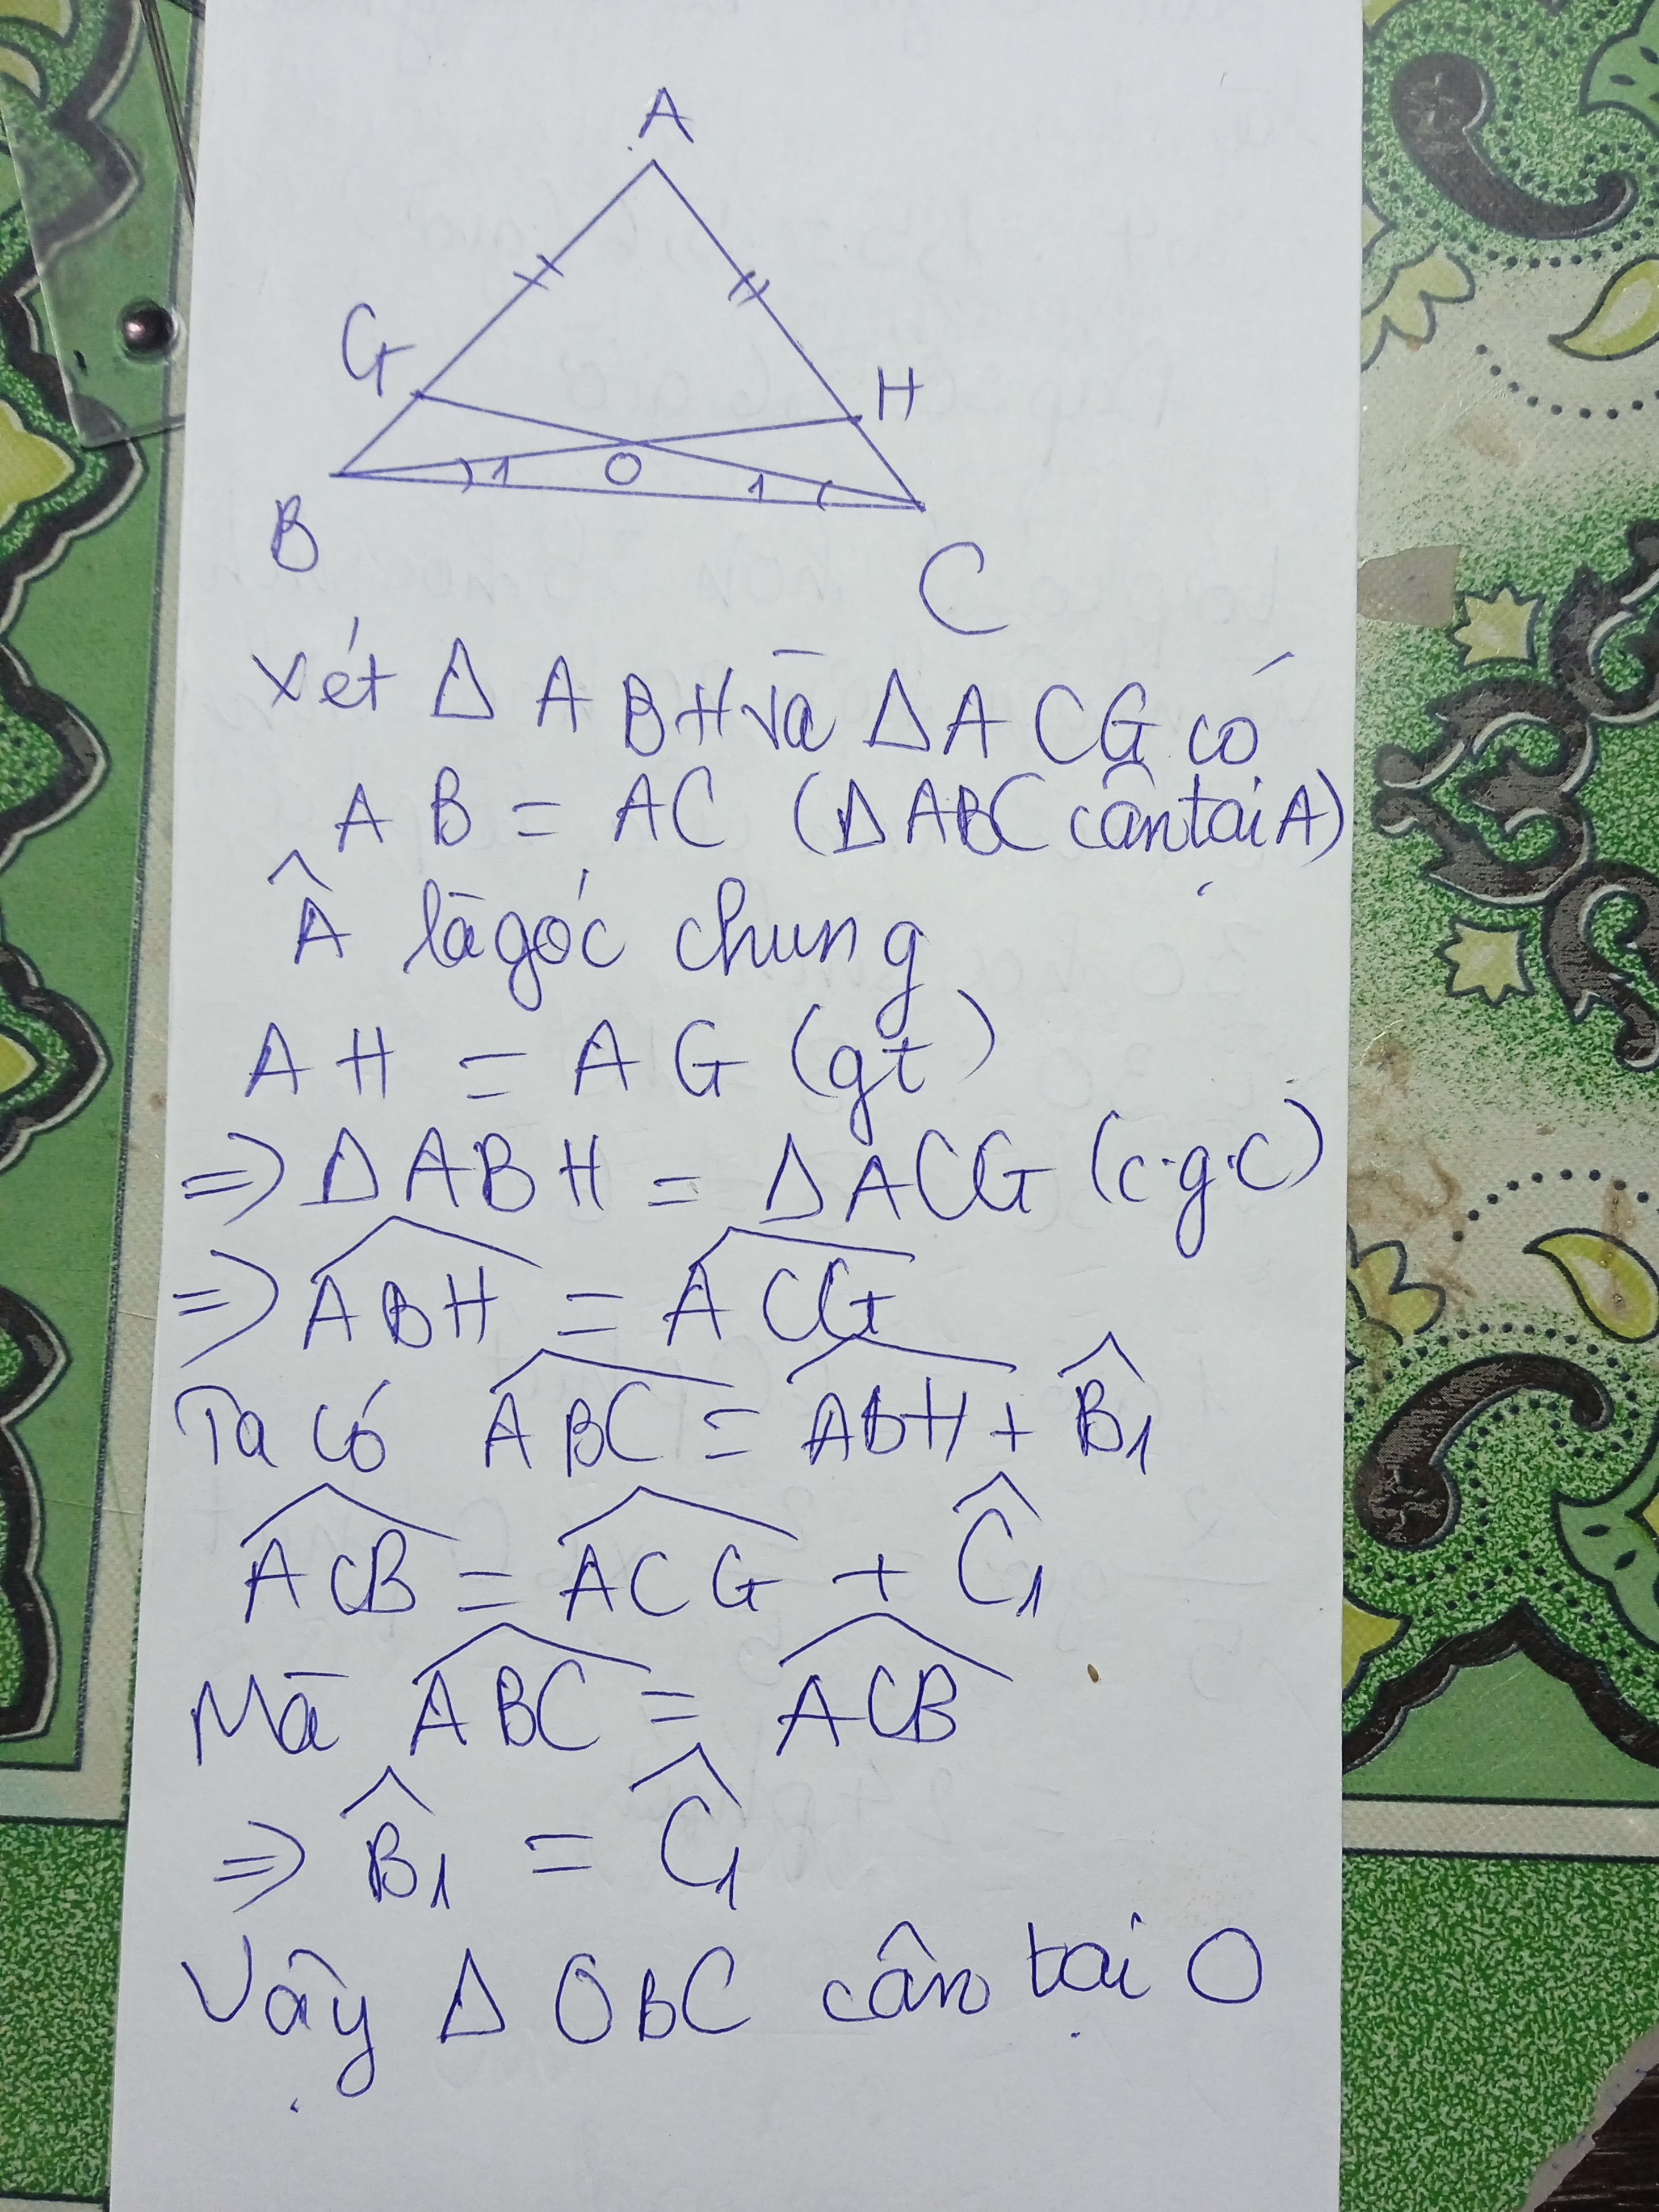 A
G
H
1 O 1
B
C
Xét Δ ABH và Δ ACG có
AB = AC (Δ ABC cân tại A)
Â là góc chung
AH = AG (gt)
=> Δ ABH = Δ ACG (c.g.c)
=> \widehat{ABH} = \widehat{ACG}
Ta có \widehat{ABC} = \widehat{ABH} + \widehat{B}₁
\widehat{ACB} = \widehat{ACG} + \widehat{C}₁
Mà \widehat{ABC} = \widehat{ACB}
=> \widehat{B}₁ = \widehat{C}₁
Vậy Δ OBC cân tại O